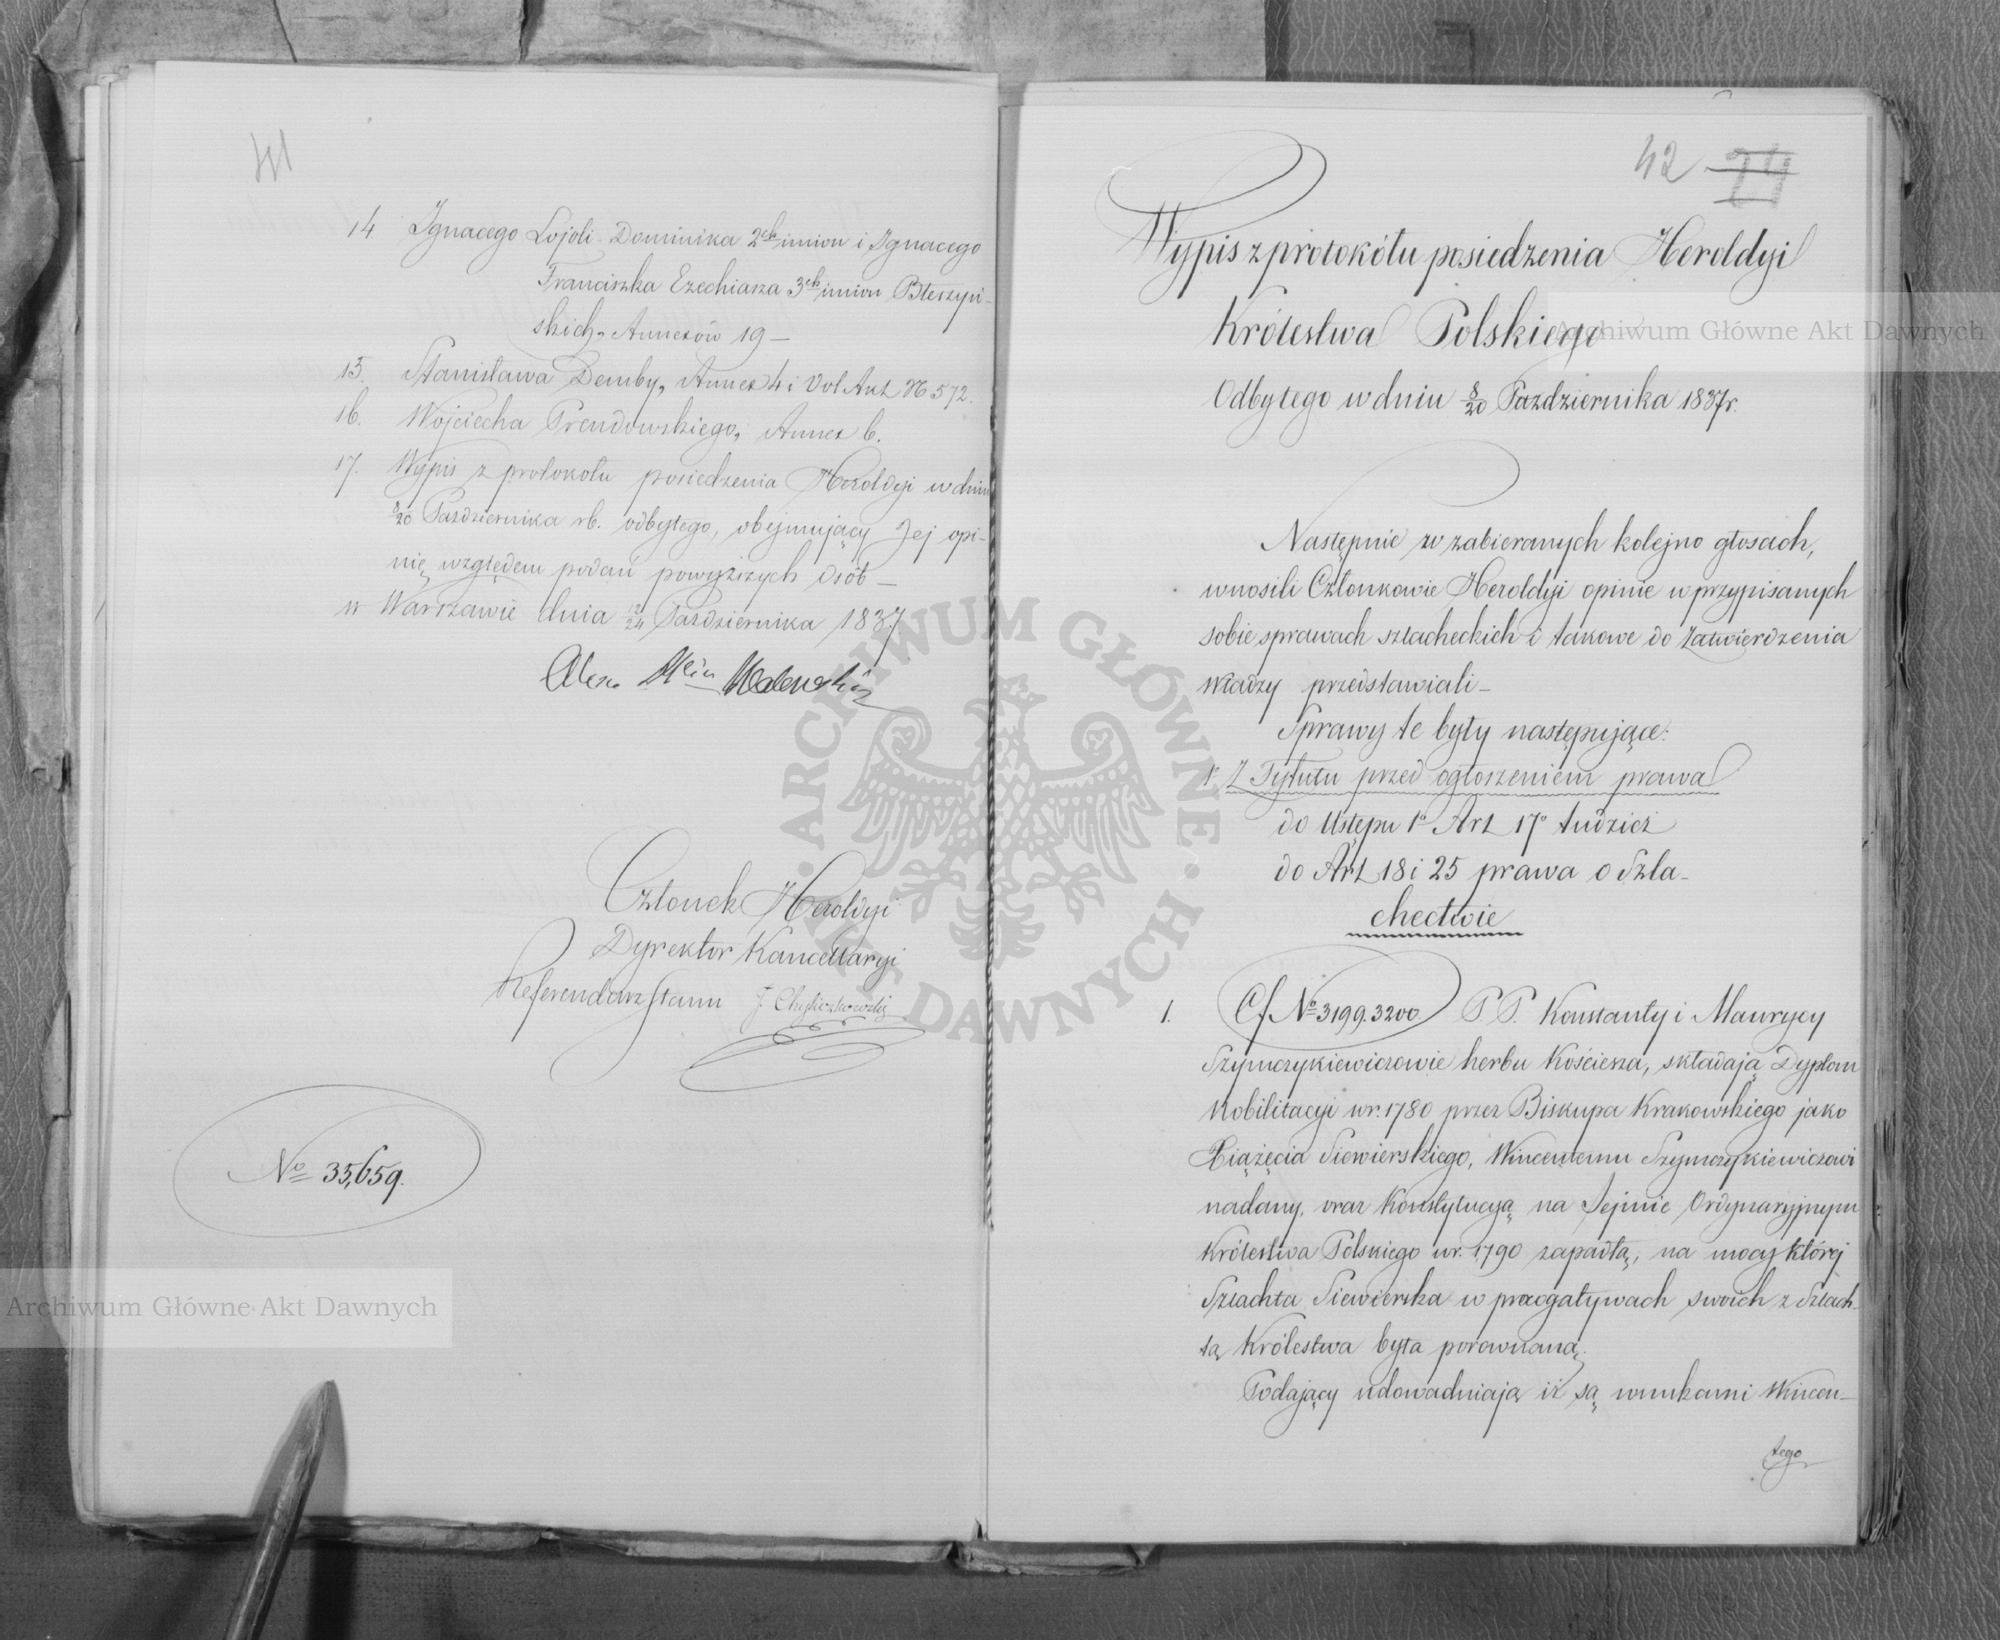 41
14. Ignacego Lojoli Dominika 2ch imion i Ignacego
Franciszka Ezechiasza 3ch imion Błeszyń-
skich, Annexów 19 –
15. Stanisława Demby, Annex 4 i Vol Akt N 572.
16. Wojciecha Prendowskiego, Annex 6.
17. Wypis z protokółu posiedzenia Heroldyi w dniu
8/20 Października rb. odbytego, obejmujący Jej opi-
nię względem podań powyższych osób –
w Warszawie dnia 12/24 Października 1837
Członek Heroldyi
Dyrektor Kancellaryi
Referendarz Stanu J. Chyliczkowski
No 35,659.
42 24
Wypis z protokółu posiedzenia Heroldyi
Królestwa Polskiego
Odbytego w dniu 8/20 Października 1837 r.
Następnie w zabieranych kolejno głosach,
wnosili Członkowie Heroldyi opinie w przypisanych
sobie sprawach szlacheckich i takowe do zatwierdzenia
Władzy przedstawiali –
Sprawy te były następujące:
1° Z Tytułu przed ogłoszeniem prawa
do Ustępu 1° Art 17° tudzież
do Art 18 i 25 prawa o Szla-
chectwie
1. Cf No 3199.3200 P.P. Konstanty i Maurycy
Szymczykiewiczowie herbu Kościesza, składają Dyplom
Nobilitacyi w r. 1780 przez Biskupa Krakowskiego jako
Xiążęcia Siewierskiego, Wincentemu Szymczykiewiczowi
nadany, oraz Konstytucyą na Sejmie Ordynaryjnym
Królestwa Polskiego w r. 1790 zapadłą, na mocy której
Szlachta Siewierska w prerogatywach swoich z Szlach-
tą Królestwa była porównaną.
Podający udowadniają iż są wnukami Wincen-
tego
Archiwum Główne Akt Dawnych
Archiwum Główne Akt Dawnych
ARCHIWUM GŁÓWNE AKT DAWNYCH